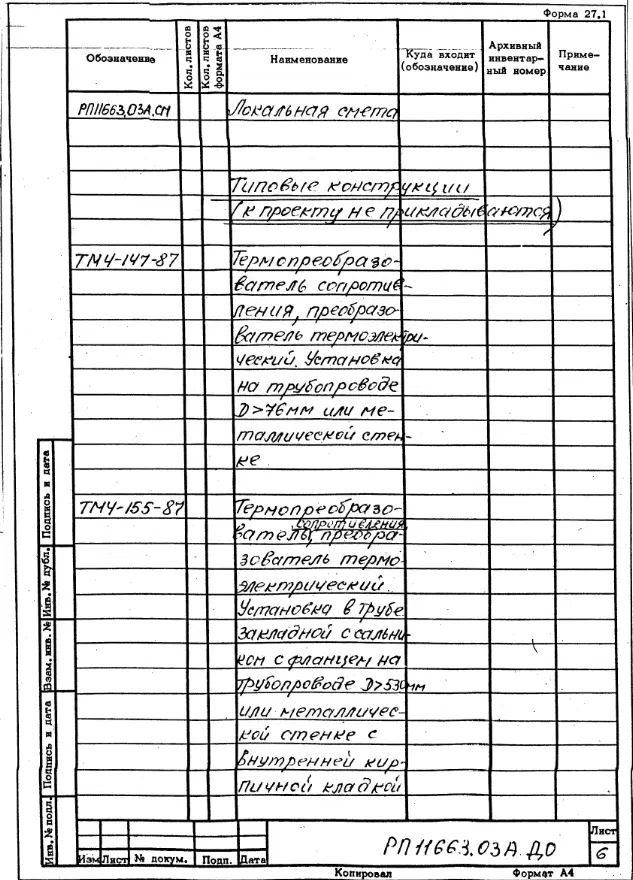 Форма 27.1
Обозначение
Кол. листов
Кол. листов формата А4
Наименование
Куда входит (обозначение)
Архивный инвентарный номер
Примечание
РП11663.03А.СМ Локальная смета
Типовые конструкции
(к проекту не прикладываются)
ТМ4-147-87 Термопреобразо-
ватель сопротив-
ления, преобразо-
ватель термоэлектри-
ческий. Установка
на трубопроводе
D>76мм или ме-
таллической стен-
ке.
ТМ4-155-87 Термопреобразо-
сопротивления,
ватель, преобра-
зователь термо-
электрический.
Установка в трубе
закладной с сальни-
ком с фланцем на
трубопроводе D>530мм
или металличес-
кой стенке с
внутренней кир-
пичной кладкой
Подпись и дата
Инв. № дубл.
Взам. инв. №
Подпись и дата
Инв. № подл.
Изм Лист № докум. Подп. Дата
РП 11663.03А.ДО
Лист
6
Копировал Формат А4